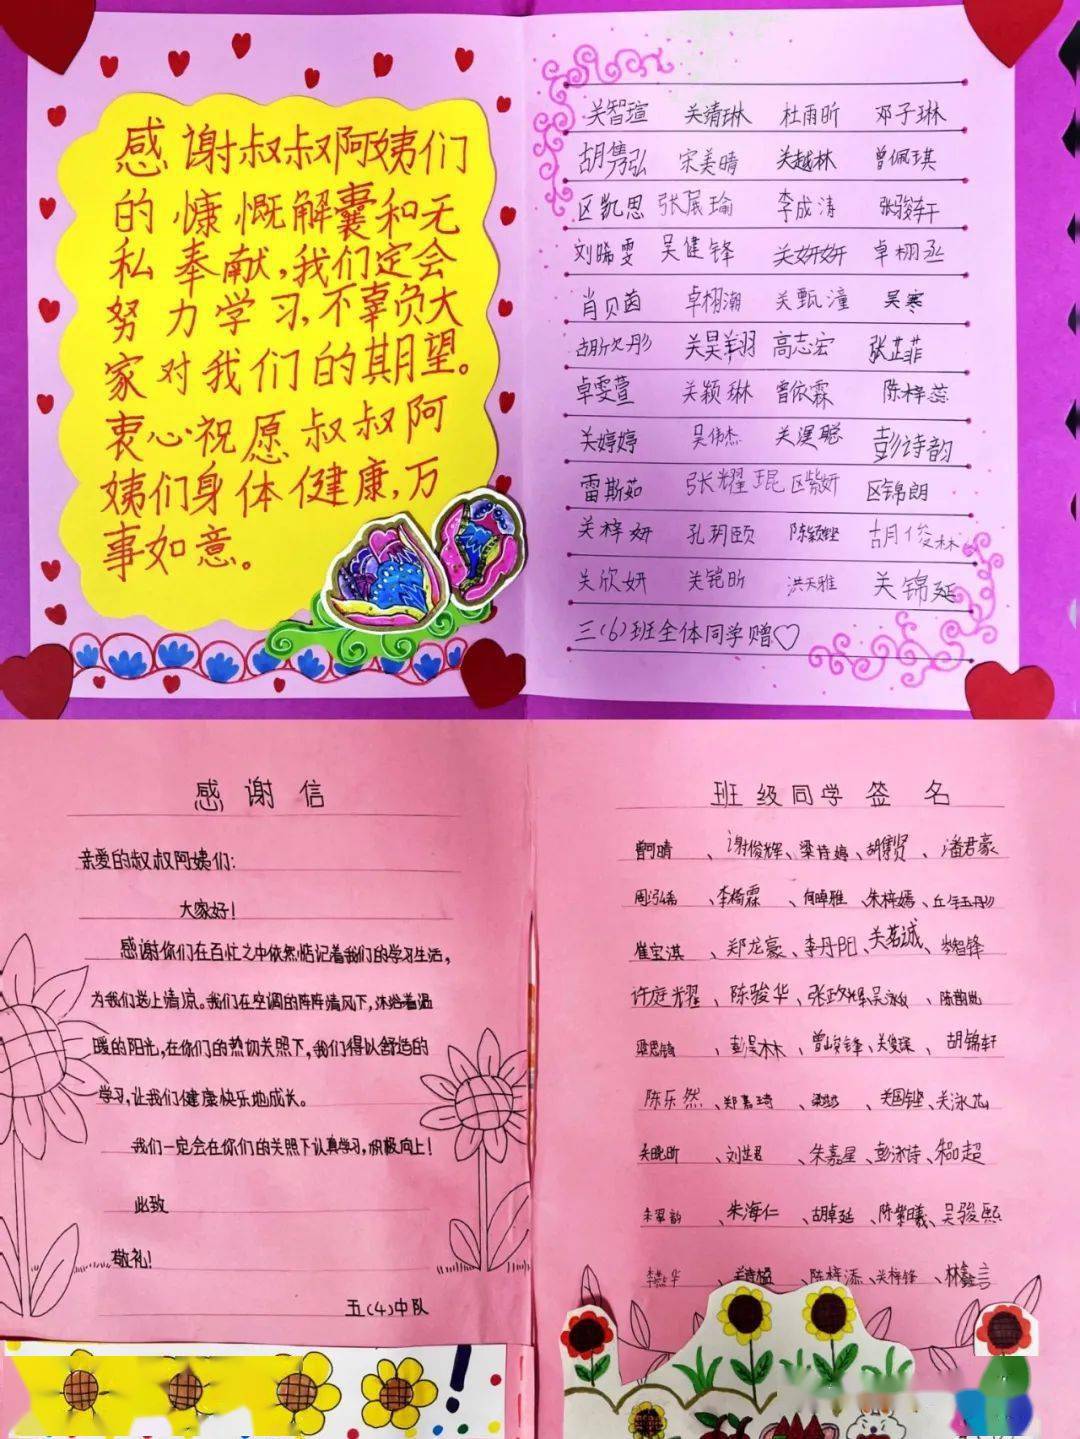 感谢叔叔阿姨们
的慷慨解囊和无
私奉献,我们定会
努力学习,不辜负大
家对我们的期望。
衷心祝愿叔叔阿
姨们身体健康,万
事如意。
关智瑄 关清琳 杜雨昕 邓子琳
胡隽弘 宋美晴 关越林 曾佩琪
区凯思 张展瑜 李成涛 张骏轩
刘晞雯 吴健锋 关妍妍 卓栩丞
肖贝茵 卓栩潮 关甄潼 吴寒
胡欣彤 关昊翔 高志宏 张芷菲
卓雯萱 关颖琳 曾依霖 陈梓蕊
关婷婷 吴伟杰 关滢聪 彭诗韵
雷斯茹 张耀琨 区紫妍 区锦朗
关梓妍 孔玥颐 陈颖铿 胡俊林
关欣妍 关铠昕 洪天雅 关锦延
三(6)班全体同学赠♡
感谢信
亲爱的叔叔阿姨们:
大家好!
感谢你们在百忙之中依然惦记着我们的学习生活,
为我们送上清凉。我们在空调的阵阵清风下,沐浴着温
暖的阳光,在你们的热切关照下,我们得以舒适的
学习,让我们健康快乐地成长。
我们一定会在你们的关照下认真学习,积极向上!
此致
敬礼!
五(4)中队
班级同学签名
曾柯晴、谢俊辉、梁诗婷、胡隽贤、潘君豪
周泓希、李梓霖、何卓雅、朱梓嫣、丘钰彤
崔宝淇、郑龙豪、李丹阳、关茗诚、岑智锋
许庭耀、陈骏华、张政烨、吴泳仪、
彭昊林、曾峻锋、关俊琛、胡锦轩
陈乐然、郑嘉琦、关国铿、关泳芯
吴晓昕、刘芷君、朱嘉星、彭泳诗、
朱翠韵、朱海仁、胡卓延、陈紫曦、吴骏熙
李燕华、陈梓添、关梓锋、林鑫言